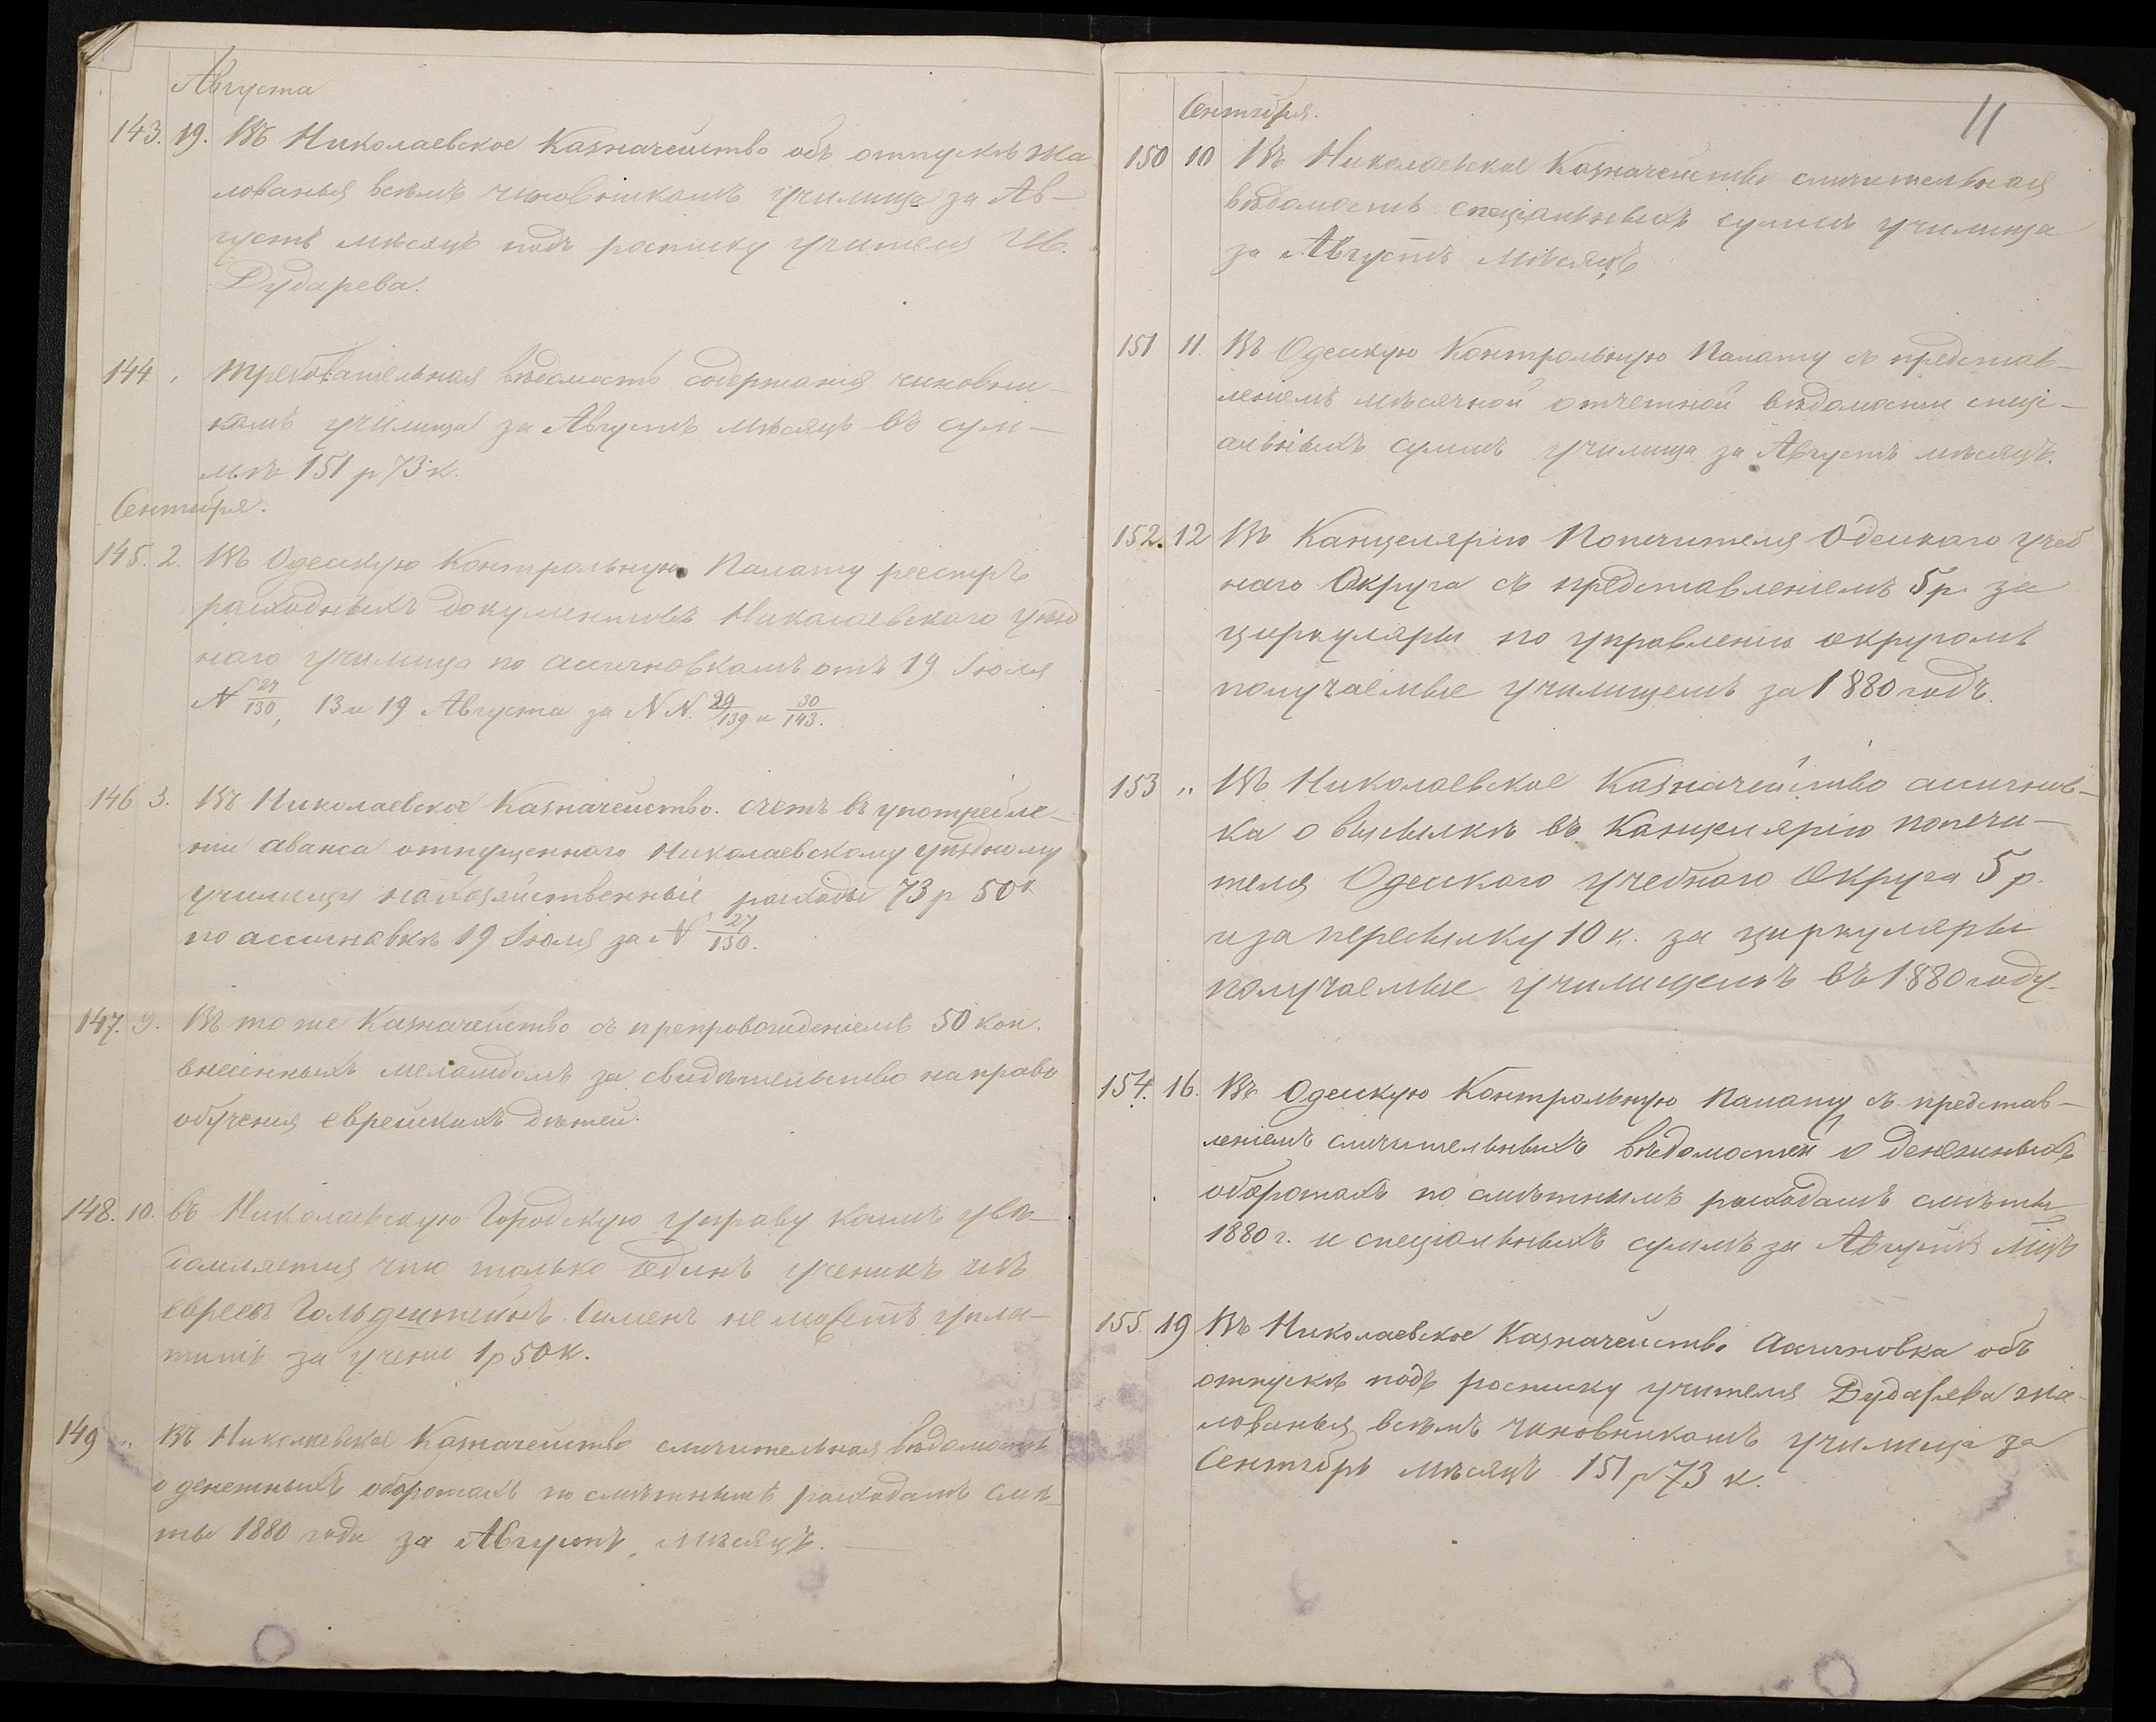 Августа
143. 19. Въ Николаевское Казначейство объ отпускѣ жа-
лованья всѣмъ чиновникамъ училища за Ав-
густъ мѣсяцъ подъ росписку учителя Ив.
Дударева.
144 Требовательная вѣдомость содержанія чиновни-
камъ училища за Августъ мѣсяцъ въ сум-
мѣ 151 р 73 к.
Сентября.
145. 2. Въ Одесскую Контрольную Палату реестръ
расходныхъ документовъ Николаевского уѣзд
наго училища по ассигновкамъ отъ 19 Іюля
N 27/130, 13 и 19 Августа за NN. 29/139 и 30/143.
146 3. Въ Николаевское Казначейство. счетъ въ употребле-
ніи аванса отпущеннаго Николаевскому уѣздному
училищу на хозяйственные расходы 73 р 50 к
по ассигновкѣ 19 Іюля за N 27/130.
147. 9. Въ то же Казначейство съ препровожденіемъ 50 коп.
внесенныхъ меламдомъ за свидѣтельство на право
обученія еврейскихъ дѣтей.
148. 10. въ Николаевскую Городскую управу коимъ увѣ-
домляется что только единъ ученикъ изъ
евреевъ Гольдштейнъ Сименъ не можетъ упла-
тить за ученіе 1 р 50 к.
149 „ Въ Николаевское Казначейство сличительная вѣдомость
о денежныхъ оборотахъ по смѣтнымъ расходамъ смѣ-
ты 1880 года за Августъ мѣсяцъ.
11
Сентября.
150 10 Въ Николаевское Казначейство сличительная
вѣдомость спеціальныхъ суммъ училища
за Августъ мѣсяцъ
151 11. Въ Одесскую Контрольную Палату съ представ-
леніемъ мѣсячной отчетной вѣдомости спеці-
альныхъ суммъ училища за Августъ мѣсяцъ.
152. 12 Въ Канцелярію Попечителя Одесскаго учеб
наго Округа съ представленіемъ 5 р. за
циркуляры по управленію округомъ
получаемые училищемъ за 1880 годъ.
153 „ Въ Николаевское Казначейство ассигнов-
ка о высылкѣ въ Канцелярію попечи-
теля Одесскаго учебнаго Округа 5 р.
и за пересылку 10 к. за циркуляры
получаемые училищемъ въ 1880 году.
154. 16. Въ Одесскую Контрольную Палату съ представ-
леніемъ сличительныхъ вѣдомостей о денежныхъ
оборотахъ по смѣтнымъ расходамъ смѣты
1880 г. и спеціальныхъ суммъ за Августъ М-цъ
155. 19 Въ Николаевское Казначейство Ассигновка объ
отпускѣ подъ росписку учителя Дударева жа-
лованья всѣмъ чиновникамъ училища за
Сентябрь мѣсяцъ 151 р 73 к.